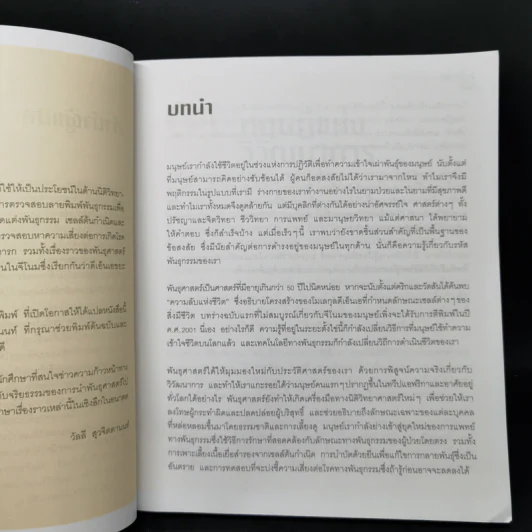 ใช้ให้เป็นประโยชน์ในด้านนิติวิทยา
การตรวจสอบลายพิมพ์พันธุกรรมเพื่อ
ดัดแต่งพันธุกรรม เซลล์ต้นกำเนิดและ
ตรวจสอบหาความเสี่ยงต่อการเกิดโรค
ทารก รวมทั้งเรื่องราวของพันธุศาสตร์
ในจีโนมซึ่งเรียกกันว่าดีเอ็นเอขยะ
พิมพ์ ที่เปิดโอกาสให้ได้แปลหนังสือนี้
นนท์ ที่กรุณาช่วยพิมพ์ต้นฉบับและ
ดี
นักศึกษาที่สนใจข่าวความก้าวหน้าทาง
กับจริยธรรมของการนำพันธุศาสตร์ไป
ษาเรื่องราวเหล่านี้ในเชิงลึกในอนาคต
วัลลี สุวจิตตานนท์
บทนำ
มนุษย์เรากำลังใช้ชีวิตอยู่ในช่วงแห่งการปฏิวัติเพื่อทำความเข้าใจเผ่าพันธุ์ของมนุษย์ นับตั้งแต่
ที่มนุษย์สามารถคิดอย่างซับซ้อนได้ ผู้คนก็อดสงสัยไม่ได้ว่าเรามาจากไหน ทำไมเราจึงมี
พฤติกรรมในรูปแบบที่เรามี ร่างกายของเราทำงานอย่างไรในยามป่วยและในยามที่มีสุขภาพดี
และทำไมเราทั้งหมดจึงดูคล้ายกัน แต่มีบุคลิกที่ต่างกันได้อย่างน่าอัศจรรย์ใจ ศาสตร์ต่างๆ ทั้ง
ปรัชญาและจิตวิทยา ชีววิทยา การแพทย์ และมานุษยวิทยา แม้แต่ศาสนา ได้พยายาม
ให้คำตอบ ซึ่งก็สำเร็จบ้าง แต่เมื่อเร็วๆ นี้ เราพบว่ายังขาดชิ้นส่วนสำคัญที่เป็นพื้นฐานของ
ข้อสงสัย ซึ่งมีนัยสำคัญต่อการดำรงอยู่ของมนุษย์ในทุกด้าน นั่นก็คือความรู้เกี่ยวกับรหัส
พันธุกรรมของเรา
พันธุศาสตร์เป็นศาสตร์ที่มีอายุเกินกว่า 50 ปีไปนิดหน่อย หากจะนับตั้งแต่คริกและวัตสันได้ค้นพบ
"ความลับแห่งชีวิต" ซึ่งอธิบายโครงสร้างของโมเลกุลดีเอ็นเอที่กำหนดลักษณะเซลล์ต่างๆ ของ
สิ่งมีชีวิต บทร่างฉบับแรกที่ไม่สมบูรณ์เกี่ยวกับจีโนมของมนุษย์เพิ่งจะได้รับการตีพิมพ์ในปี
ค.ศ.2001 นี่เอง อย่างไรก็ดี ความรู้ที่อยู่ในระยะตั้งไข่นี้ก็กำลังเปลี่ยนวิธีการที่มนุษย์ใช้ทำความ
เข้าใจชีวิตบนโลกแล้ว และเทคโนโลยีทางพันธุกรรมก็กำลังเปลี่ยนวิถีการดำเนินชีวิตของเรา
พันธุศาสตร์ได้ให้มุมมองใหม่กับประวัติศาสตร์ของเรา ด้วยการพิสูจน์ความจริงเกี่ยวกับ
วิวัฒนาการ และทำให้เราแกะรอยได้ว่ามนุษย์คนแรกๆปรากฏขึ้นในทวีปแอฟริกาและอาศัยอยู่
ทั่วโลกได้อย่างไร พันธุศาสตร์ยังทำให้เกิดเครื่องมือทางนิติวิทยาศาสตร์ใหม่ๆ เพื่อช่วยให้เรา
ลงโทษผู้กระทำผิดและปลดปล่อยผู้บริสุทธิ์ และช่วยอธิบายถึงลักษณะเฉพาะของแต่ละบุคคล
ที่หล่อหลอมขึ้นมาโดยธรรมชาติและการเลี้ยงดู มนุษย์เรากำลังย่างเข้าสู่ยุคใหม่ของการแพทย์
ทางพันธุกรรมซึ่งใช้วิธีการรักษาที่สอดคล้องกับลักษณะทางพันธุกรรมของผู้ป่วยโดยตรง รวมทั้ง
การเพาะเลี้ยงเนื้อเยื่อสำรองจากเซลล์ต้นกำเนิด การบำบัดด้วยยีนเพื่อแก้ไขการกลายพันธุ์ซึ่งเป็น
อันตราย และการทดสอบที่จะบ่งชี้ความเสี่ยงต่อโรคทางพันธุกรรมซึ่งถ้ารู้ก่อนอาจจะลดลงได้